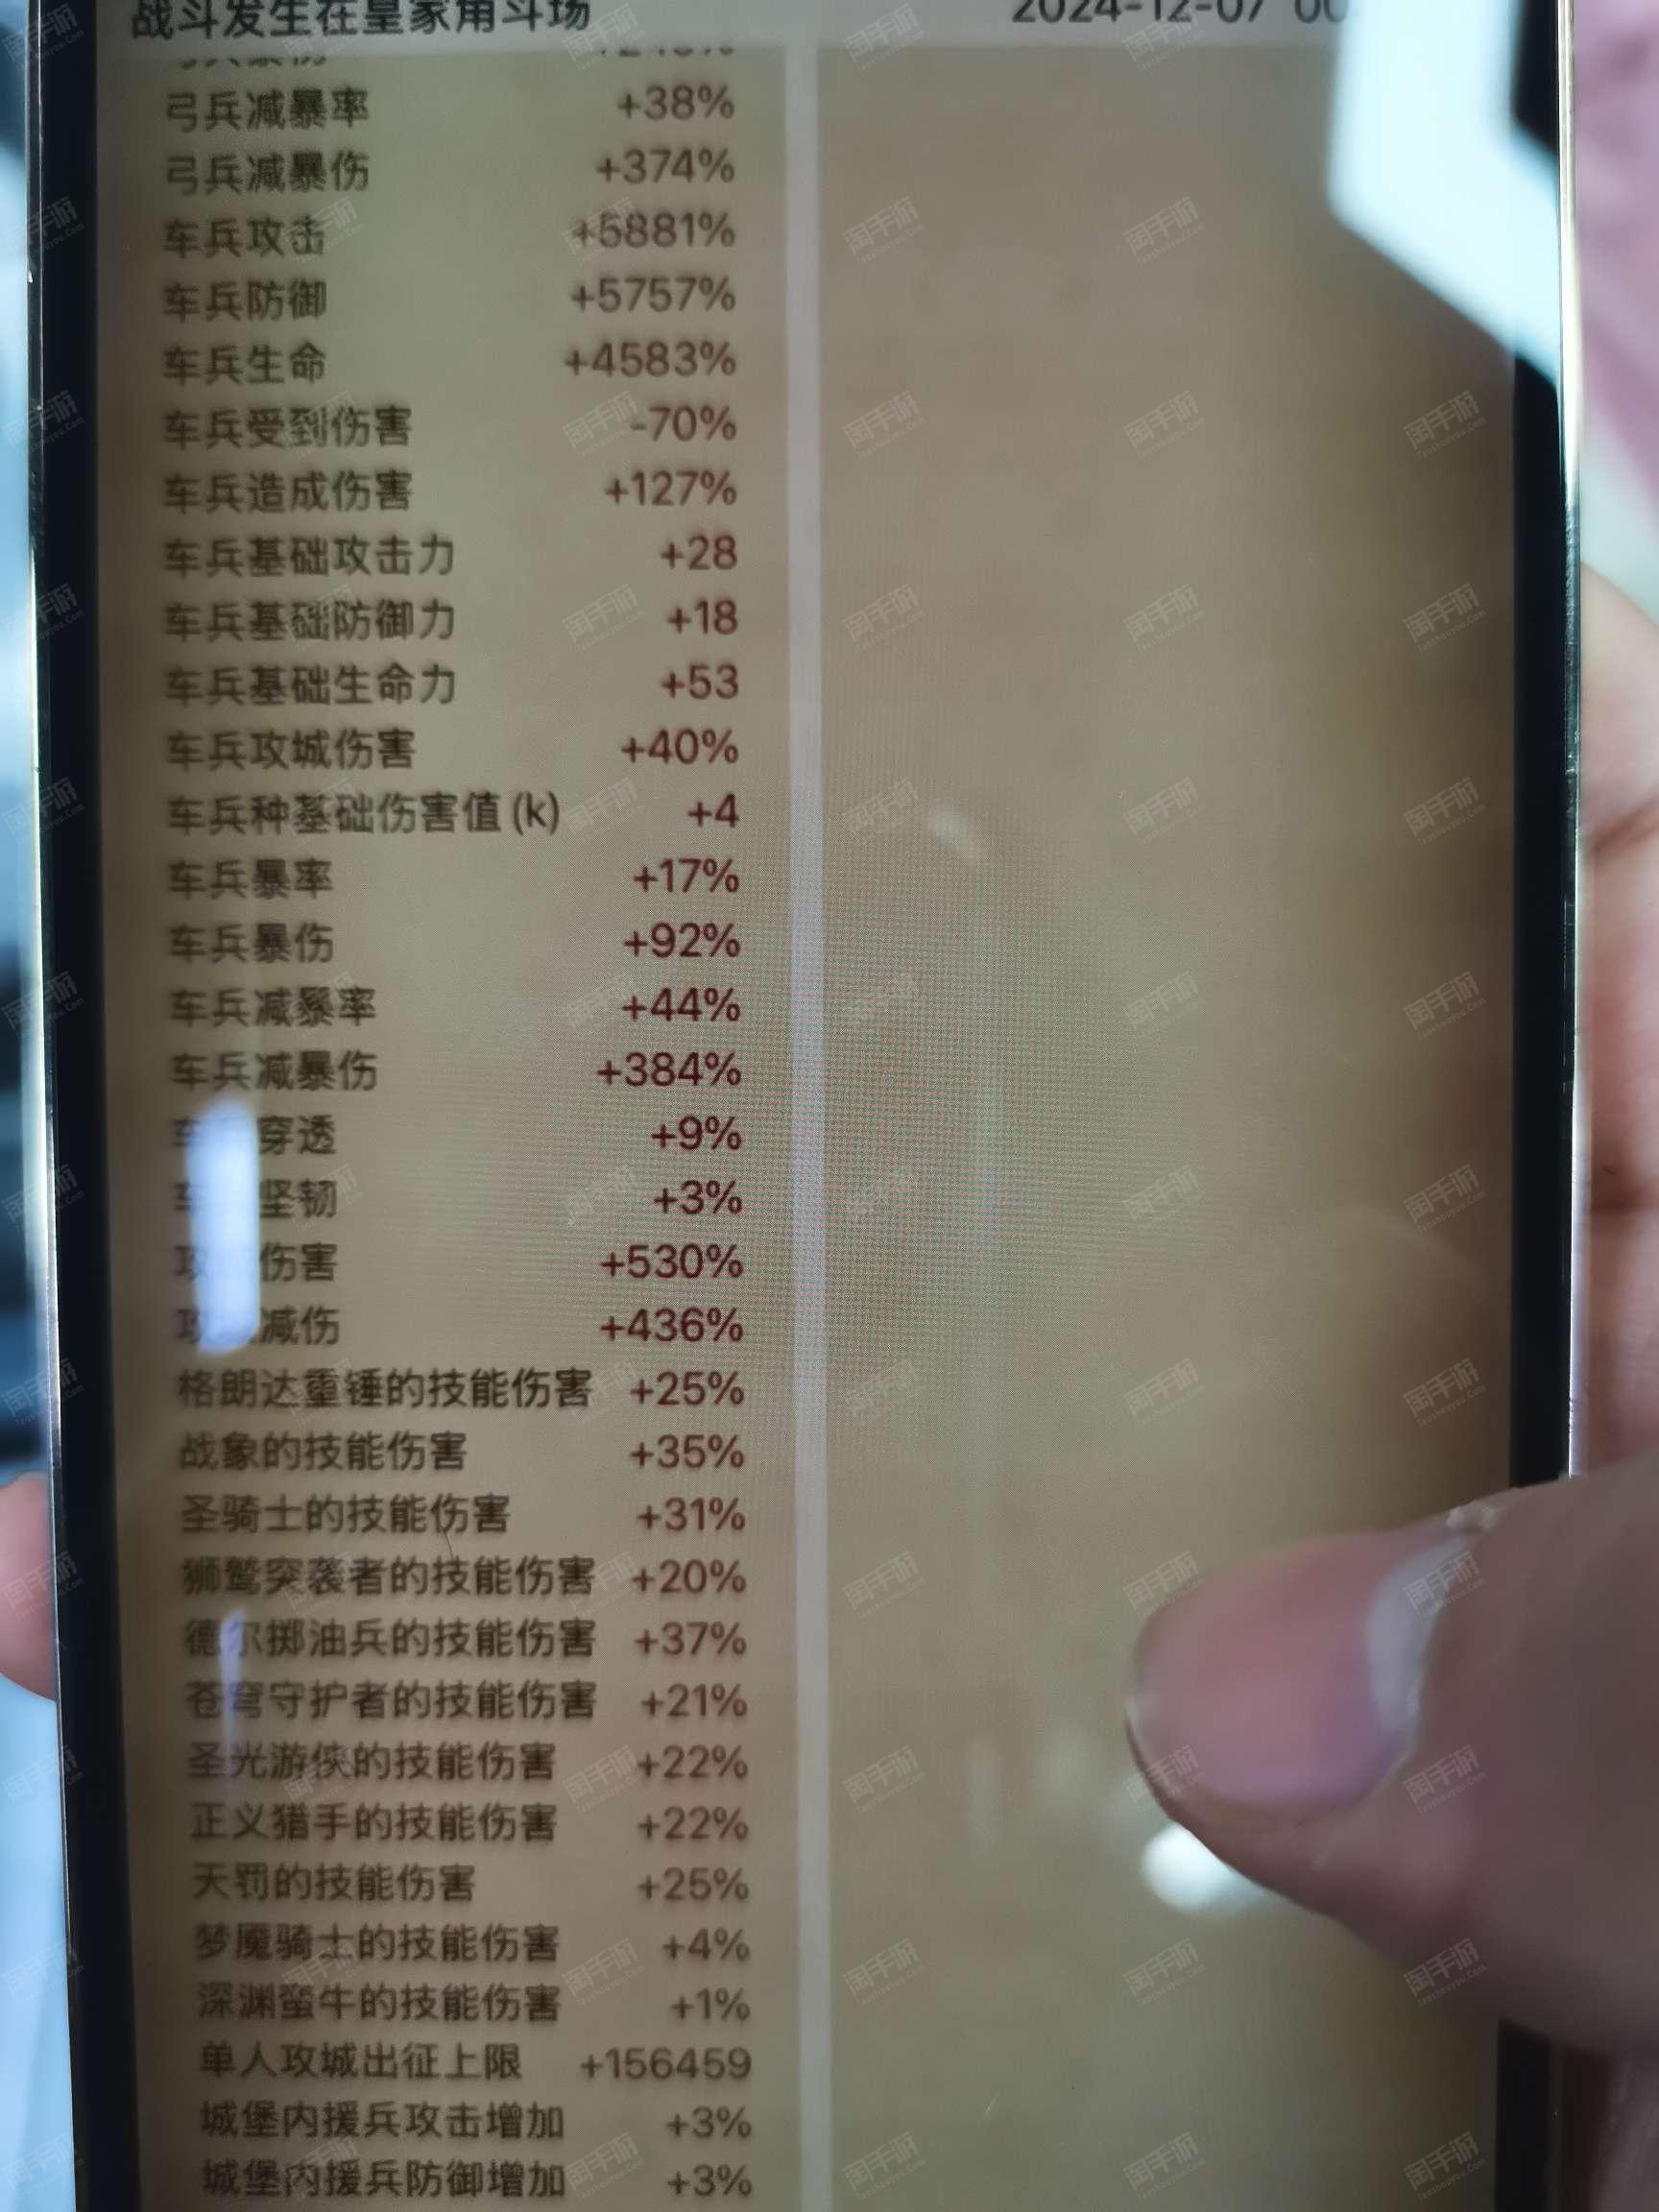 战斗发生在皇家角斗场 2024-12-07
弓兵减暴率 +38%
弓兵减暴伤 +374%
车兵攻击 +5881%
车兵防御 +5757%
车兵生命 +4583%
车兵受到伤害 -70%
车兵造成伤害 +127%
车兵基础攻击力 +28
车兵基础防御力 +18
车兵基础生命力 +53
车兵攻城伤害 +40%
车兵种基础伤害值(k) +4
车兵暴率 +17%
车兵暴伤 +92%
车兵减暴率 +44%
车兵减暴伤 +384%
穿透 +9%
坚韧 +3%
伤害 +530%
减伤 +436%
格朗达重锤的技能伤害 +25%
战象的技能伤害 +35%
圣骑士的技能伤害 +31%
狮鹫突袭者的技能伤害 +20%
德尔掷油兵的技能伤害 +37%
苍穹守护者的技能伤害 +21%
圣光游侠的技能伤害 +22%
正义猎手的技能伤害 +22%
天罚的技能伤害 +25%
梦魇骑士的技能伤害 +4%
深渊蛮牛的技能伤害 +1%
单人攻城出征上限 +156459
城堡内援兵攻击增加 +3%
城堡内援兵防御增加 +3%
淘手游